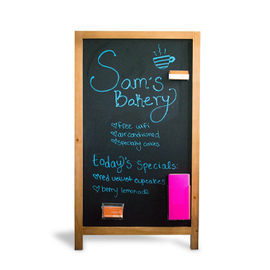 Sam's
Bakery
free wifi
air conditioned
specialty cakes
today's Specials:
red velvet cupcakes
berry lemonade